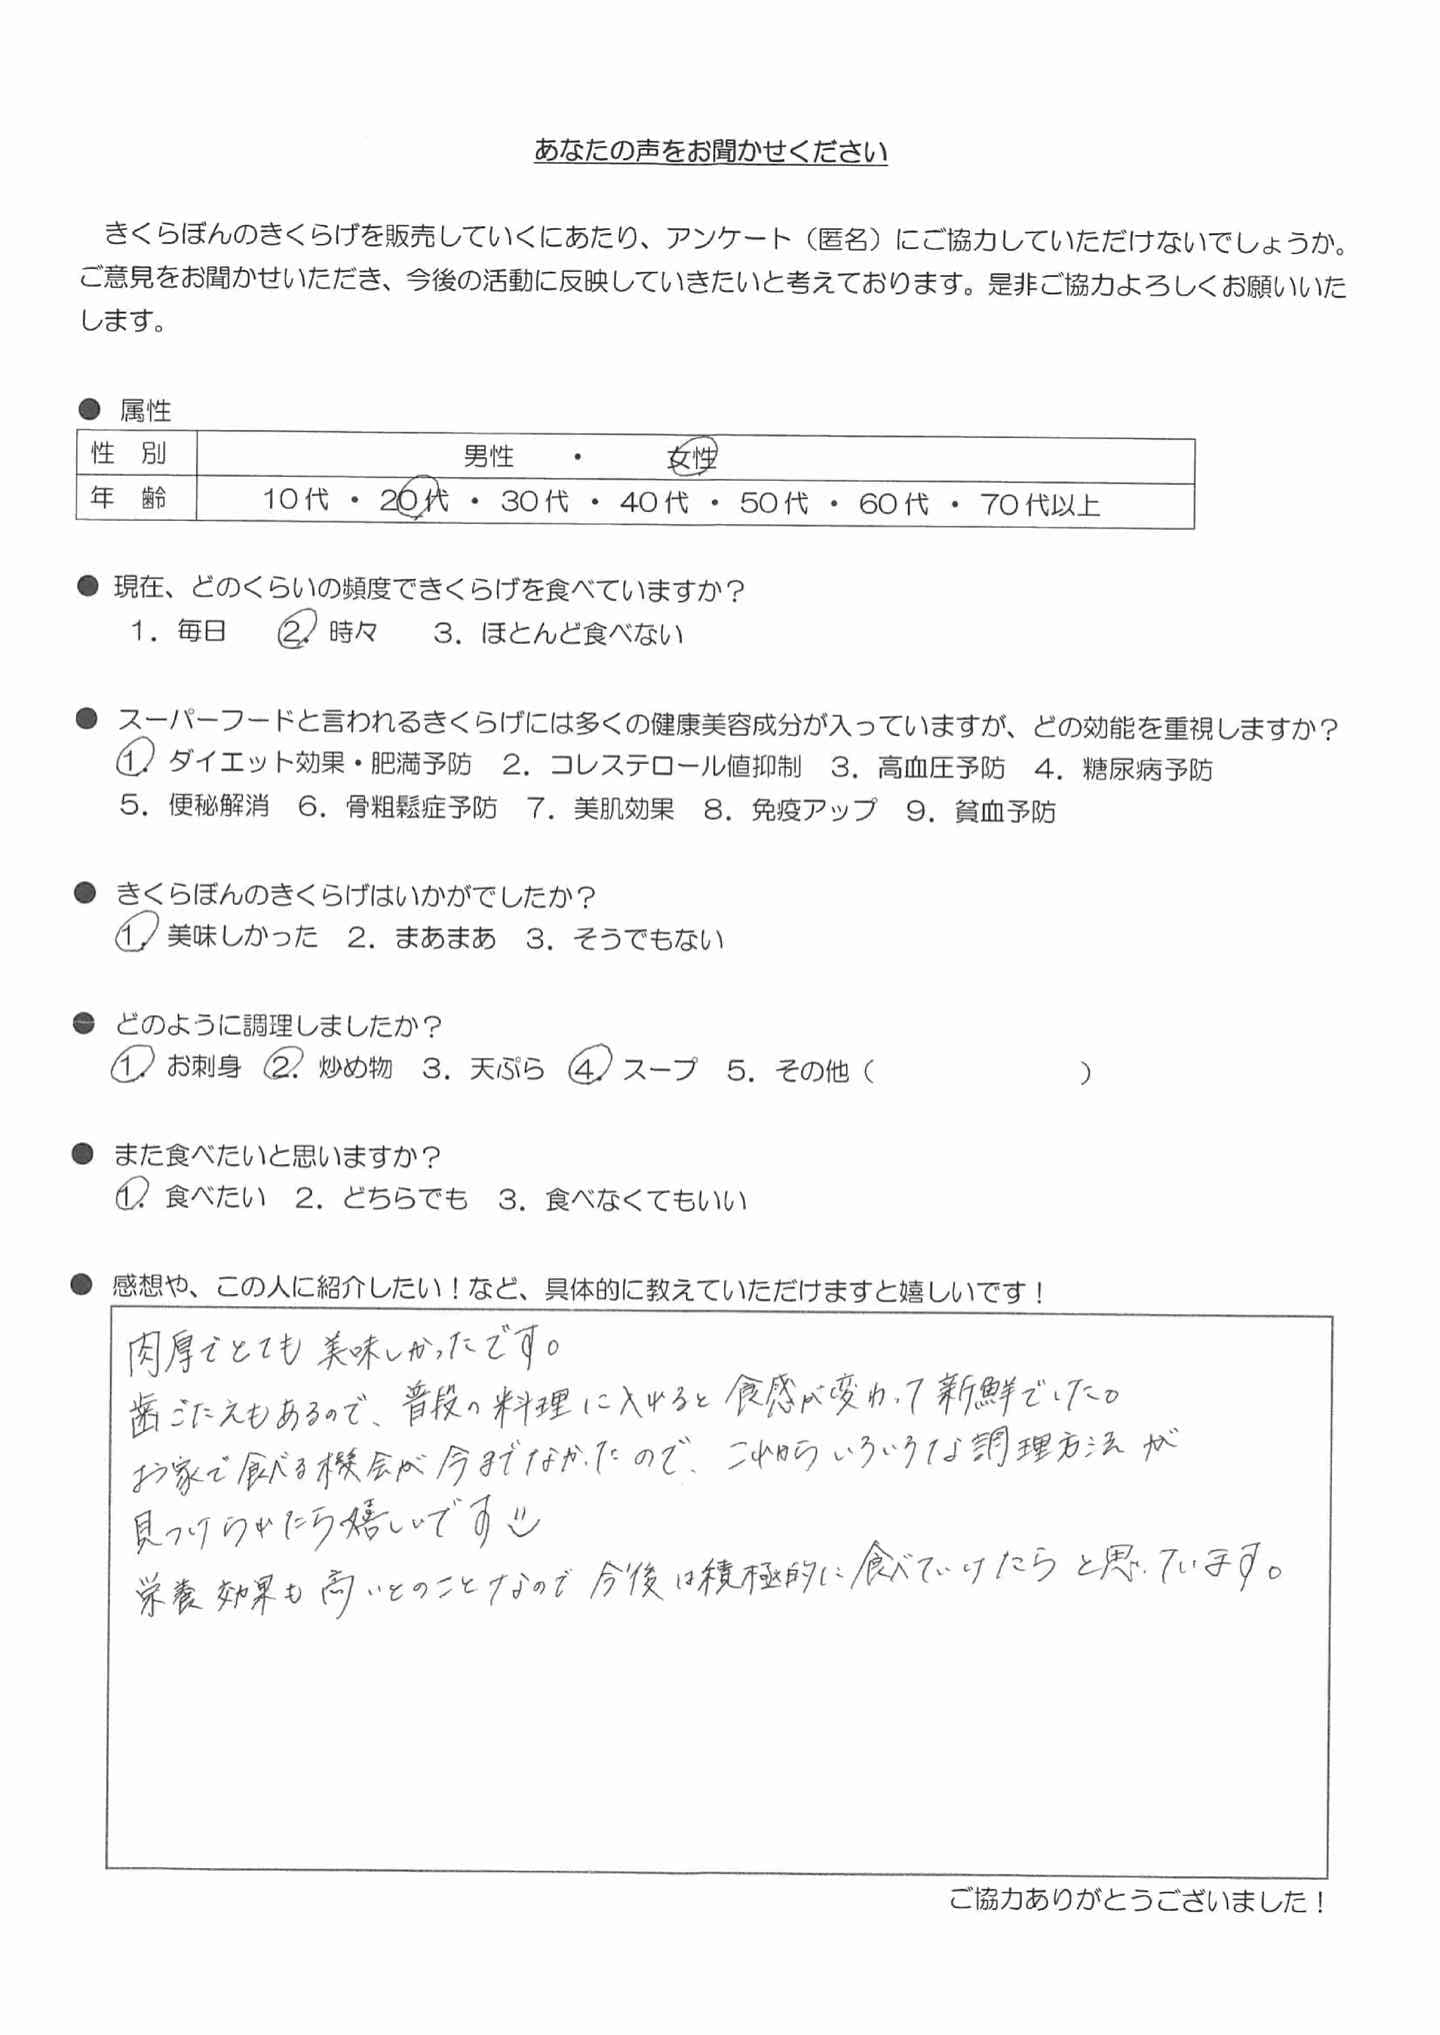 あなたの声をお聞かせください
きくらぼんのきくらげを販売していくにあたり、アンケート（匿名）にご協力していただけないでしょうか。
ご意見をお聞かせいただき、今後の活動に反映していきたいと考えております。是非ご協力よろしくお願いいた
します。
● 属性
性 別 男性 ・ 女性
年 齢 10代 ・ 20代 ・ 30代 ・ 40代 ・ 50代 ・ 60代 ・ 70代以上
● 現在、どのくらいの頻度できくらげを食べていますか？
1．毎日 2．時々 3．ほとんど食べない
● スーパーフードと言われるきくらげには多くの健康美容成分が入っていますが、どの効能を重視しますか？
1．ダイエット効果・肥満予防 2．コレステロール値抑制 3．高血圧予防 4．糖尿病予防
5．便秘解消 6．骨粗鬆症予防 7．美肌効果 8．免疫アップ 9．貧血予防
● きくらぼんのきくらげはいかがでしたか？
1．美味しかった 2．まあまあ 3．そうでもない
● どのように調理しましたか？
1．お刺身 2．炒め物 3．天ぷら 4．スープ 5．その他（ ）
● また食べたいと思いますか？
1．食べたい 2．どちらでも 3．食べなくてもいい
● 感想や、この人に紹介したい！など、具体的に教えていただけますと嬉しいです！
肉厚でとても美味しかったです。
歯ごたえもあるので、普段の料理に入れると食感が変わって新鮮でした。
お家で食べる機会が今までなかったので、これからいろいろな調理方法が
見つけられたら嬉しいです
栄養効果も高いとのことなので今後は積極的に食べていけたらと思っています。
ご協力ありがとうございました！